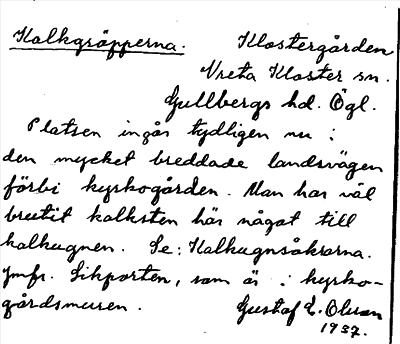 Kalkgräpperna. Klostergården
Vreta Kloster sn.
Gullbergs hd. Ögl.
Platsen ingår tydligen nu i
den mycket breddade landsvägen
förbi kyrkogården. Man har väl
brutit kalksten här något till
kalkugnen. Se: Kalkugnsåkrarna.
Jmfr. Likporten, som är i kyrko-
gårdsmuren. Gustaf E. Olsson
1937.